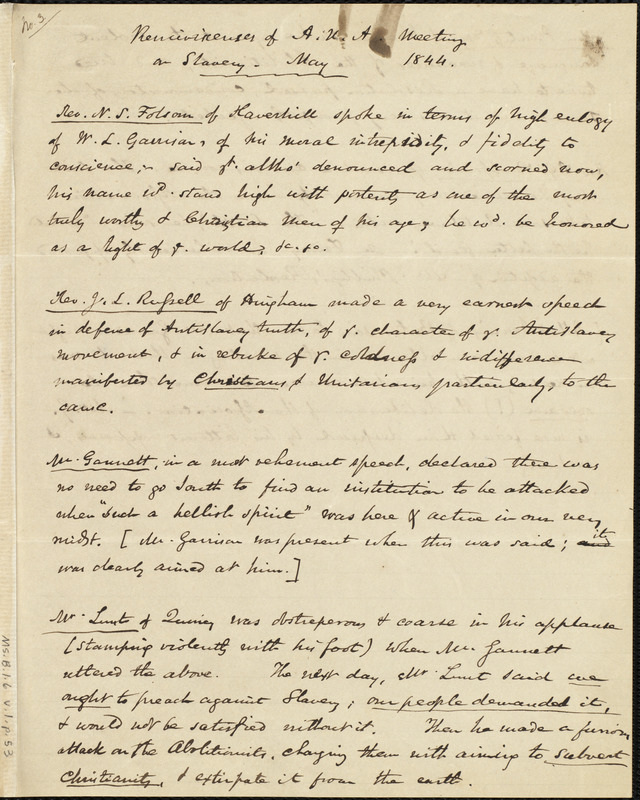 No. 3
Reminiscenses of A. U. A. Meeting
on Slavery. May 1844.
Rev. N. S. Folsom of Haverhill spoke in terms of high eulogy
of W. L. Garrison, of his moral intrepidity, & fidelity to
conscience; said yt. altho' denounced and scorned now,
his name wd. stand high with posterity as one of the most
truly worthy & Christian men of his age; he wd. be honored
as a light of ye. world, &c. &c.
Rev. J. L. Russell of Hingham made a very earnest speech
in defence of Antislavery truth, of ye. character of ye. Antislavery
movement, & in rebuke of ye. coldness & indifference
manifested by Christians, & Unitarians particularly, to the
cause.
Mr. Gannett, in a most vehement speech, declared there was
no need to go South to find an institution to be attacked
when "such a hellish spirit" was here & active in our very
midst. [Mr. Garrison was present when this was said; and it
was clearly aimed at him.]
Mr. Lunt of Quincy was obstreperous & coarse in his applause
(stamping violently with his foot) when Mr. Gannett
uttered the above. The next day, Mr. Lunt said we
ought to preach against Slavery; our people demanded it,
& would not be satisfied without it. Then he made a furious
attack on the Abolitionists, charging them with aiming to subvert
Christianity, & extirpate it from the earth.
Ms. B. 1. 6 v. 1, p. 53